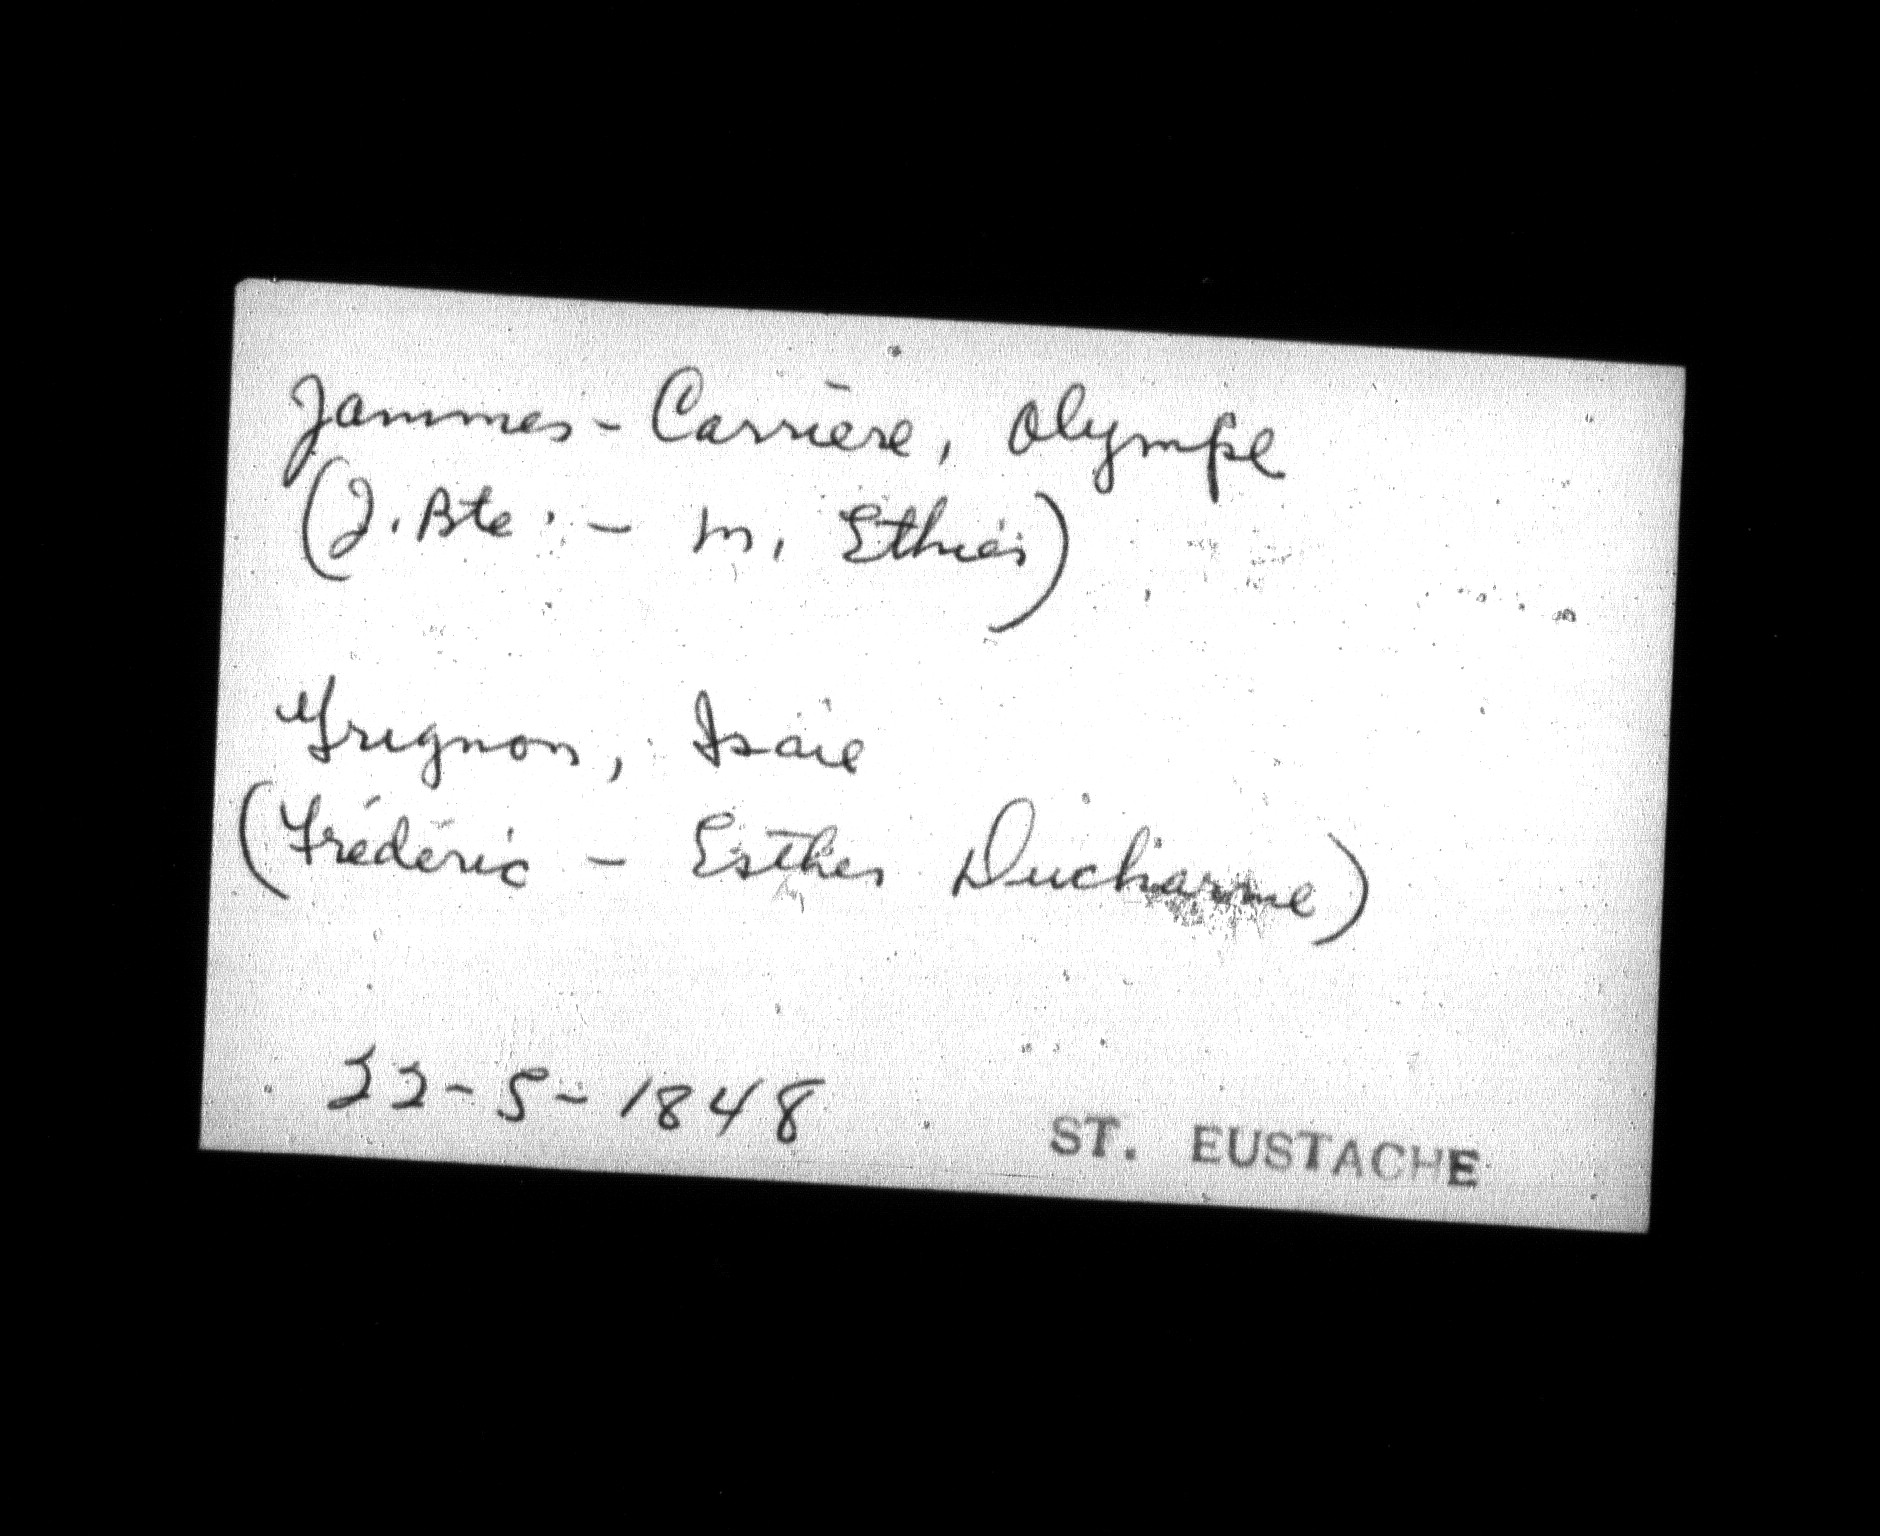 Jammes-Carrière, Olympe
(J. Bte. - M. Ethiés)
Grignon, Isaïe
(Frédéric - Esther Ducharme)
22-5-1848
ST. EUSTACHE